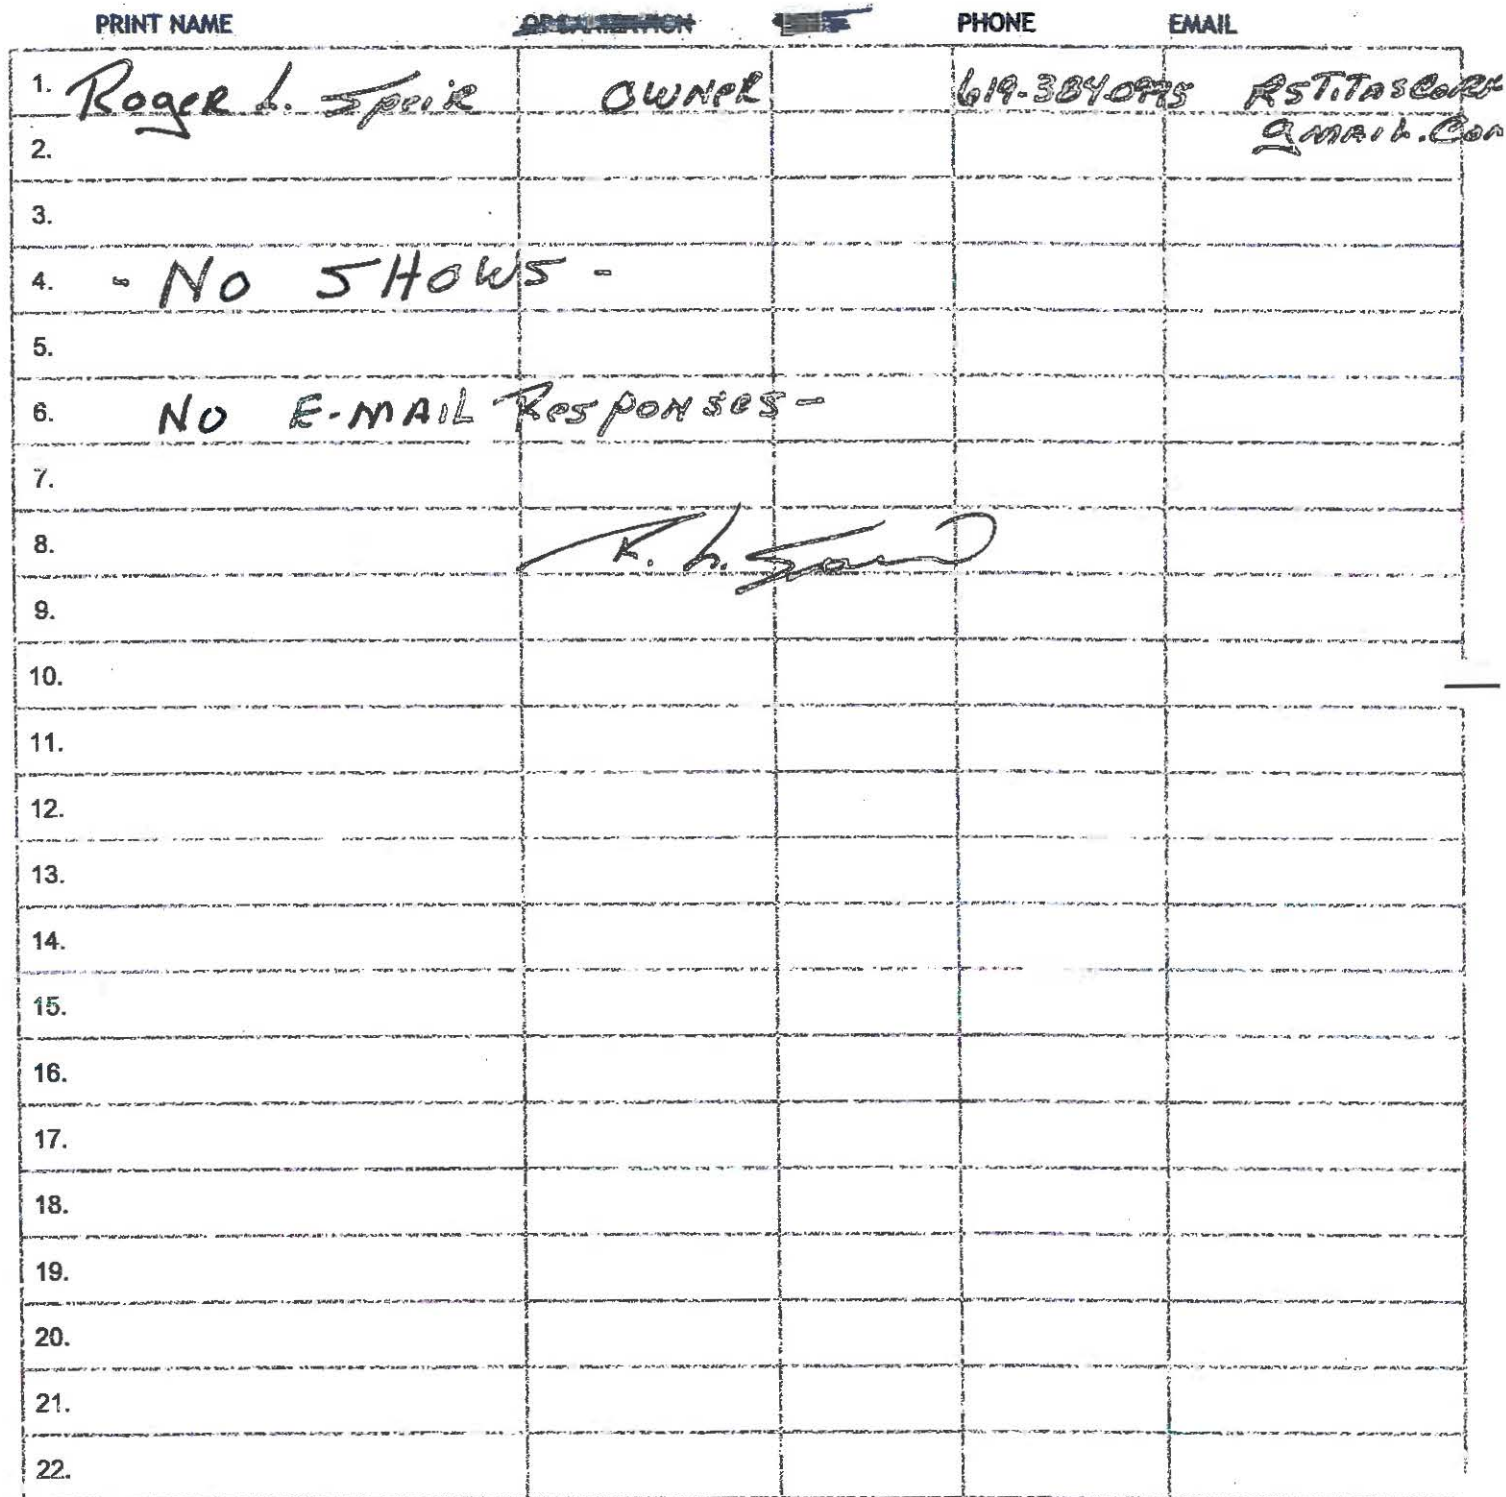 PRINT NAME ORGANIZATION PHONE EMAIL
1. Roger L. Speir OWNER
gmail.com
2.
3.
4. - No SHOWS -
5.
6. No E-MAIL Responses -
7.
8. R. L.
9.
10.
11.
12.
13.
14.
15.
16.
17.
18.
19.
20.
21.
22.